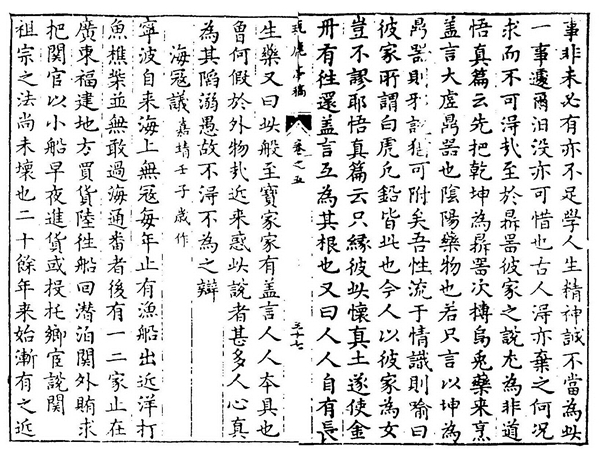 事非未必有亦不足學人生精神誠不當為此
一事遽爾汨没亦可惜也古人得亦棄之何况
求而不可得哉至於鼎器彼家之說尤為非道
悟真篇云先把乾坤為鼎器次摶烏兎藥来烹
盖言大虚鼎器也陰陽藥物也若只言以坤為
鼎器則邪說猶可附矣吾性流于情識則喻曰
彼家所謂白虎兎鉛皆此也今人以彼家為女
豈不謬耶悟真篇云只縁彼此懷真土遂使金
丹有徃還盖言互為其根也又曰人人自有長
玩鹿亭稿
卷之五
生藥又曰此般至寶家家有盖言人人本具也
曾何假於外物哉近来惑此說者甚多人心真
為其陷溺愚故不得不為之辯
海寇議 嘉靖壬子歲作
寧波自来海上無寇每年止有漁船出近洋打
魚樵柴並無敢過海通番者後有一二家止在
廣東福建地方買貨陸徃船回潛泊関外賄求
把関官以小船早夜進貨或投托鄉宦說関
祖宗之法尚未壞也二十餘年来始漸有之近